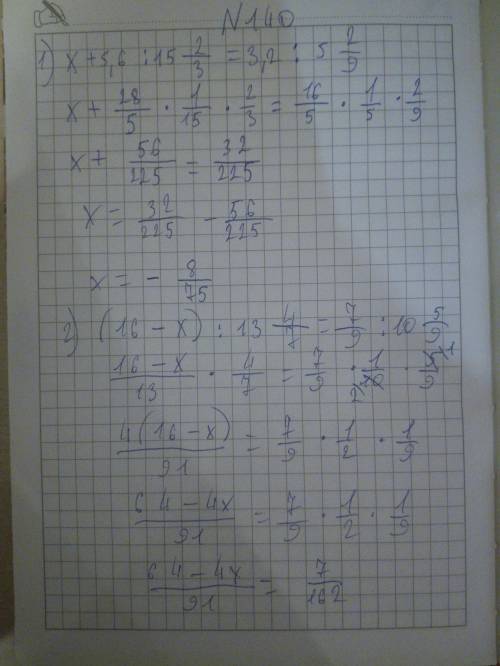 N140
1) x + 5,6 : 15 2/3 = 3,2 : 5 2/9
x + 28/5 · 1/15 · 2/3 = 16/5 · 1/5 · 2/9
x + 56/225 = 32/225
x = 32/225 - 56/225
x = - 8/75
2) (16 - x) : 13 4/7 = 7/9 : 10 5/9
16 - x/13 · 4/7 = 7/9 · 1/10 2 · 5/9 1
4(16 - x)/91 = 7/9 · 1/2 · 1/9
64 - 4x/91 = 7/9 · 1/2 · 1/9
64 - 4x/91 = 7/162